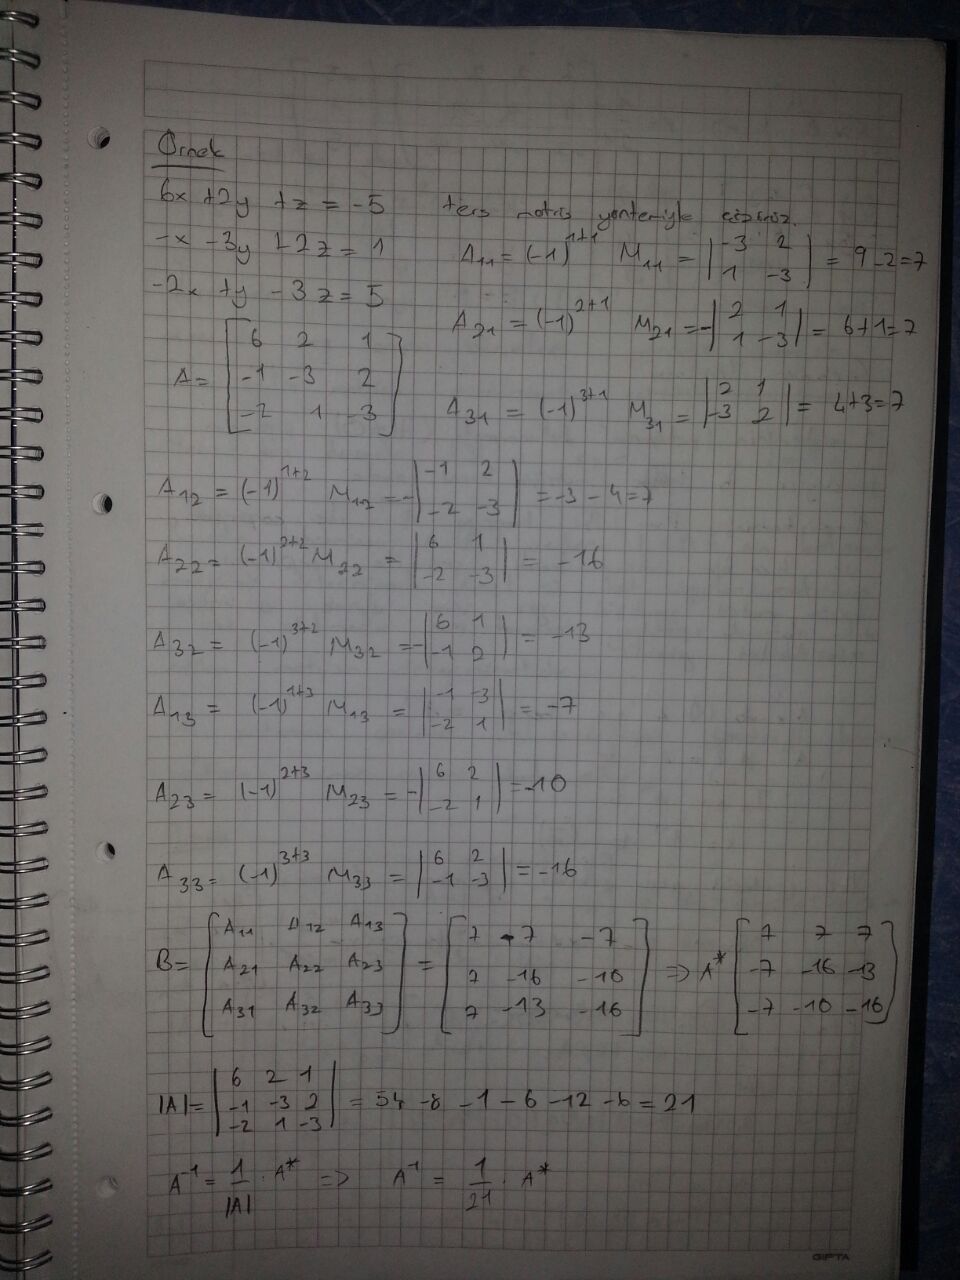 Örnek
6x +2y +z = -5 ters matris yöntemiyle çözünüz.
-x -3y +2z = 1
-2x +y -3z = 5
A₁₁ = (-1)¹⁺¹ M₁₁ = |-3 2; 1 -3| = 9-2=7
A₂₁ = (-1)²⁺¹ M₂₁ = -|2 1; 1 -3| = 6+1=7
A = [6 2 1; -1 -3 2; -2 1 -3]
A₃₁ = (-1)³⁺¹ M₃₁ = |2 1; -3 2| = 4+3=7
A₁₂ = (-1)¹⁺² M₁₂ = -|-1 2; -2 -3| = -3-4=7
A₂₂ = (-1)²⁺² M₂₂ = |6 1; -2 -3| = -16
A₃₂ = (-1)³⁺² M₃₂ = -|6 1; -1 2| = -13
A₁₃ = (-1)¹⁺³ M₁₃ = |-1 -3; -2 1| = -7
A₂₃ = (-1)²⁺³ M₂₃ = -|6 2; -2 1| = -10
A₃₃ = (-1)³⁺³ M₃₃ = |6 2; -1 -3| = -16
B = [A₁₁ A₁₂ A₁₃; A₂₁ A₂₂ A₂₃; A₃₁ A₃₂ A₃₃] = [7 -7 -7; 7 -16 -10; 7 -13 -16] ⇒ A* [7 7 7; -7 -16 -13; -7 -10 -16]
|A| = |6 2 1; -1 -3 2; -2 1 -3| = 54 -8 -1 -6 -12 -6 = 21
A⁻¹ = 1/|A| · A* ⇒ A⁻¹ = 1/21 · A*
GIPTA